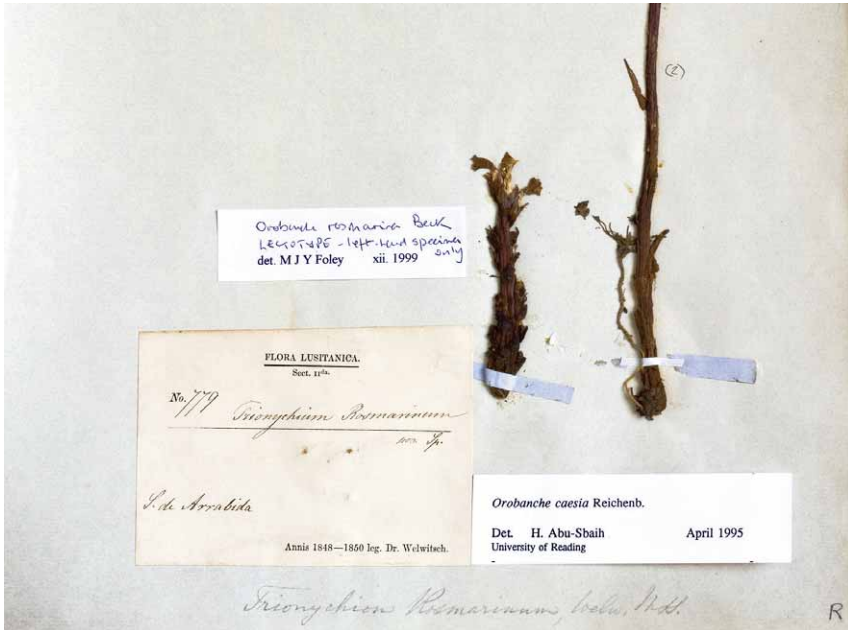 (2)
Orobanche rosmarina Beck
LECTOTYPE - left-hand specimen
only
det. M J Y Foley xii. 1999
FLORA LUSITANICA.
Sect. IIda.
No. 779
Trionychium Rosmarinum
nov. Sp.
S. de Arrabida
Annis 1848—1850 leg. Dr. Welwitsch.
Orobanche caesia Reichenb.
Det. H. Abu-Sbaih April 1995
University of Reading
Trionychion Rosmarinum, Welw. Mss.
R